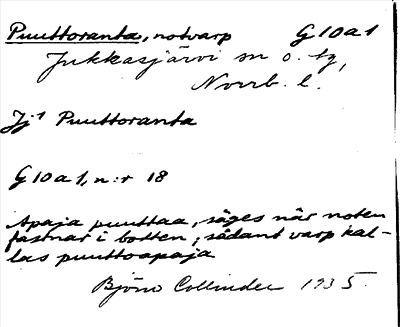 Puuttoranta, notvarp G10a1
Jukkasjärvi sn o. tg,
Norrb. l.
Jj1 Puuttoranta
G10a1, n:r 18
Apaja puuttaa, säges när noten
fastnar i botten; sådant varp kal-
las puuttoapaja
Björn Collinder 1935.